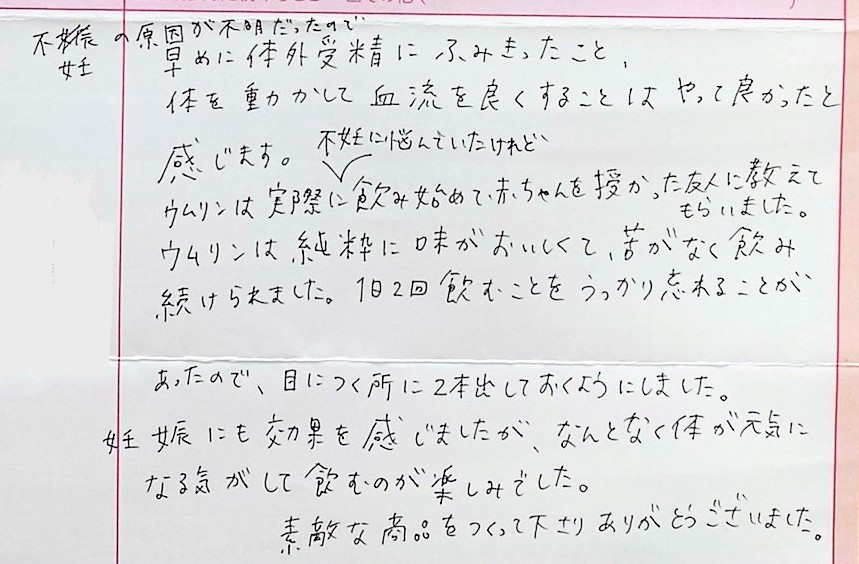 不妊の原因が不明だったので
早めに体外受精にふみきったこと、
体を動かして血流を良くすることはやって良かったと
感じます。
不妊に悩んでいたけれど
ウムリンは実際に飲み始めて、赤ちゃんを授かった友人に教えて
もらいました。
ウムリンは純粋に味がおいしくて、苦がなく飲み
続けられました。1日2回飲むことをうっかり忘れることが
あったので、目につく所に2本出しておくようにしました。
妊娠にも効果を感じましたが、なんとなく体が元気に
なる気がして飲むのが楽しみでした。
素敵な商品をつくって下さりありがとうございました。